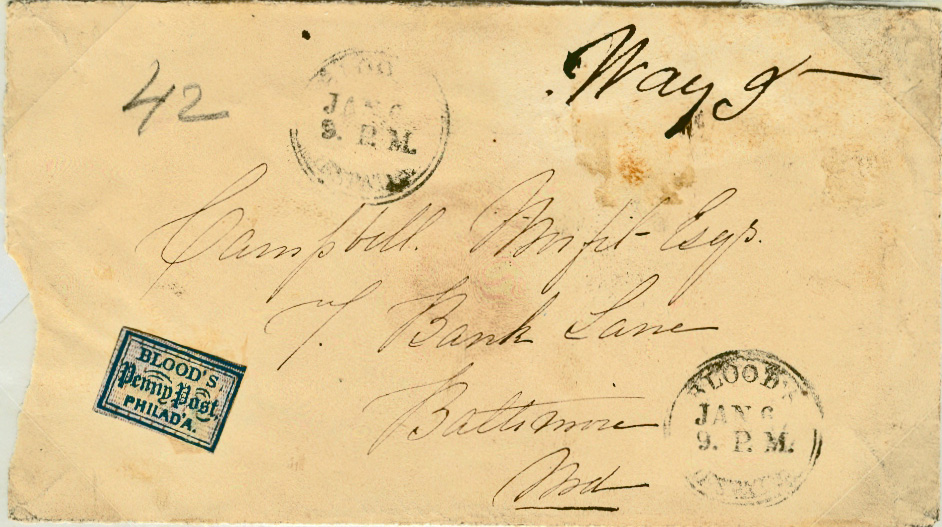 42
JAN 6
9. P.M.
Way 5
Campbell Morfit Esqr.
7. Bank Lane
Baltimore
Md
BLOOD'S
Penny Post,
PHILAD'A.
BLOOD'S
JAN 6
9. P.M.